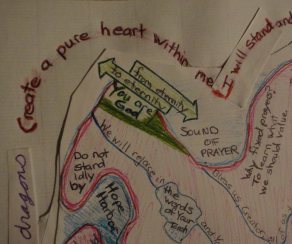 Create a pure heart within me
I will stand and
from eternity
to eternity
You are
God
SOUND
OF
PRAYER
Why fixed prayers?
To learn what
we should value
Do not
stand
idly
by
We will rejoice in
the words
of Your
Hope
Harbor
dragons